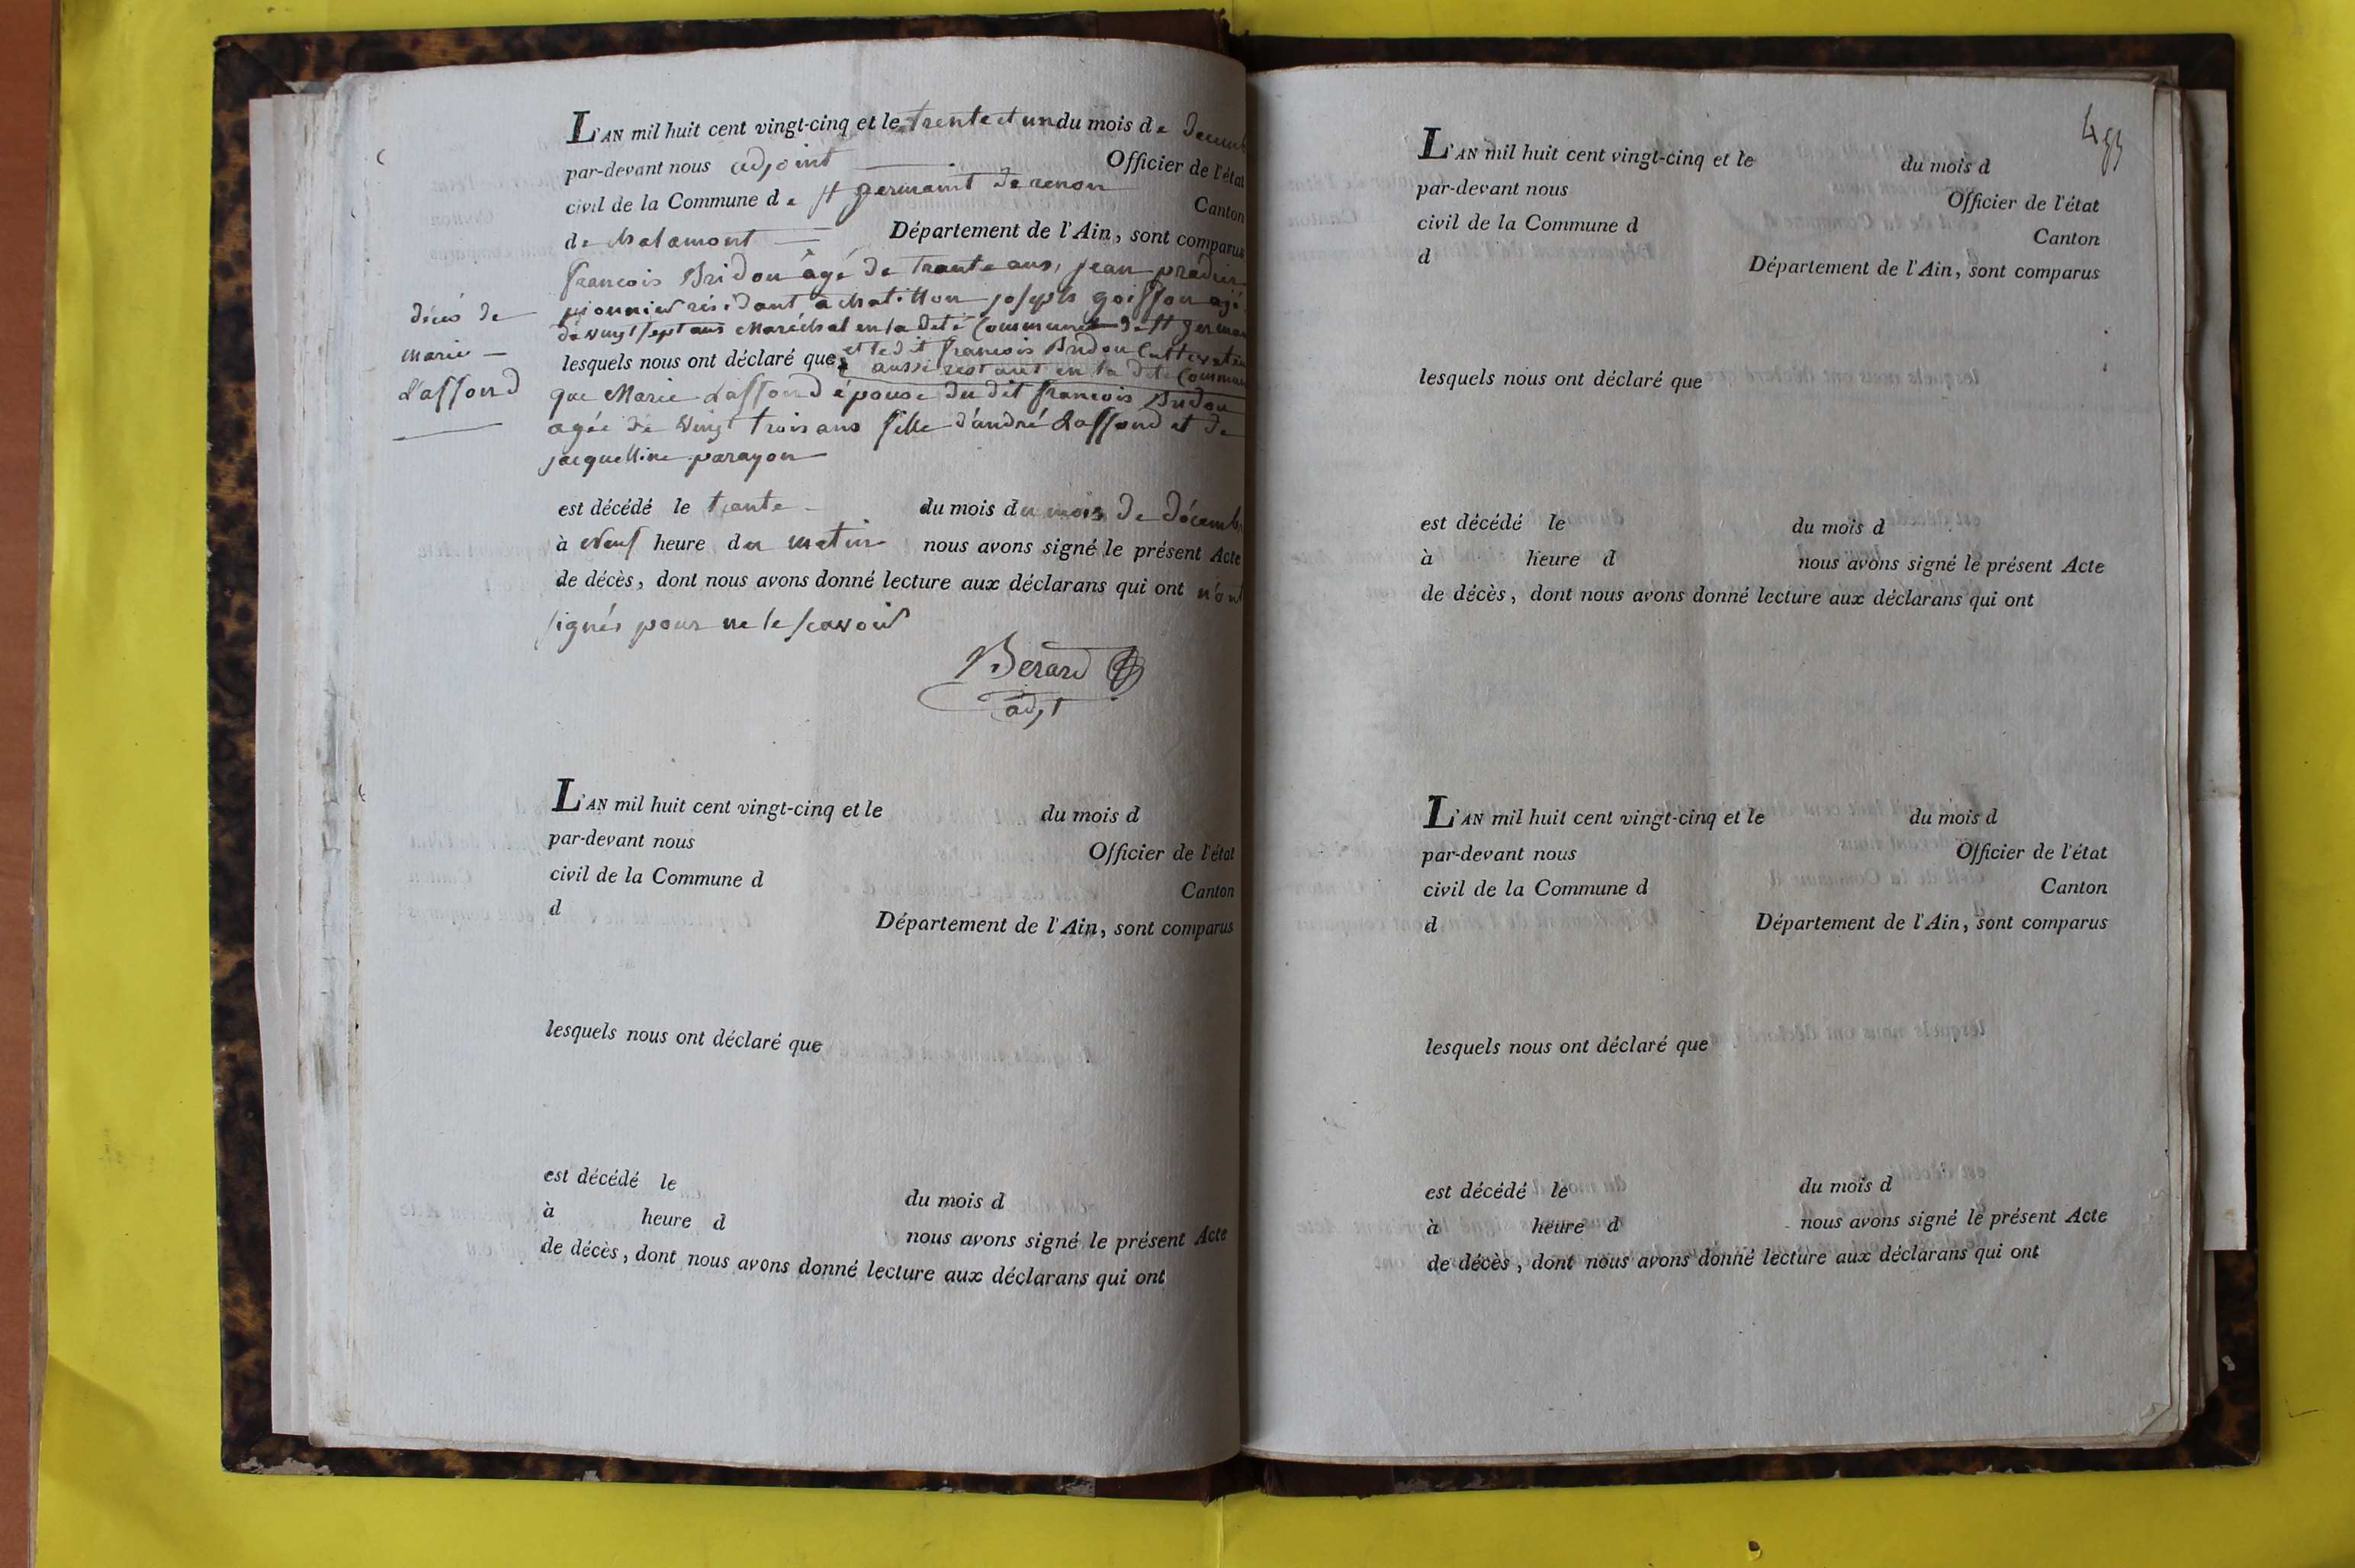 L'AN mil huit cent vingt-cinq et le trente et un du mois de decemb
par-devant nous adjoint Officier de l'état
civil de la Commune de st germaint de renon Canton
de chalamont Département de l'Ain, sont comparus
francois Bridon âgé de trante ans, jean
résidant a chatillon joseph goiffon agé
de vingt sept ans Maréchal en la dete Commune de st german
lesquels nous ont déclaré que et ledit francois Bridon
aussi restant en la dete Commun
que Marie Laffond épouse du dit francois Bridon
agée de vingt trois ans fille d'andré Laffond et de
jacquelline parayon
décés de
marie
Laffond
est décédé le trante du mois du mois de décemb
à neuf heure du matin nous avons signé le présent Acte
de décès, dont nous avons donné lecture aux déclarans qui ont n'ont
signés pour ne le scavoir
Berard
adjt
L'AN mil huit cent vingt-cinq et le du mois d
par-devant nous Officier de l'état
civil de la Commune d Canton
d Département de l'Ain, sont comparus
lesquels nous ont déclaré que
est décédé le du mois d
à heure d nous avons signé le présent Acte
de décès, dont nous avons donné lecture aux déclarans qui ont
L'AN mil huit cent vingt-cinq et le du mois d
par-devant nous Officier de l'état
civil de la Commune d Canton
d Département de l'Ain, sont comparus
lesquels nous ont déclaré que
est décédé le du mois d
à heure d nous avons signé le présent Acte
de décès, dont nous avons donné lecture aux déclarans qui ont
L'AN mil huit cent vingt-cinq et le du mois d
par-devant nous Officier de l'état
civil de la Commune d Canton
d Département de l'Ain, sont comparus
lesquels nous ont déclaré que
est décédé le du mois d
à heure d nous avons signé le présent Acte
de décès, dont nous avons donné lecture aux déclarans qui ont